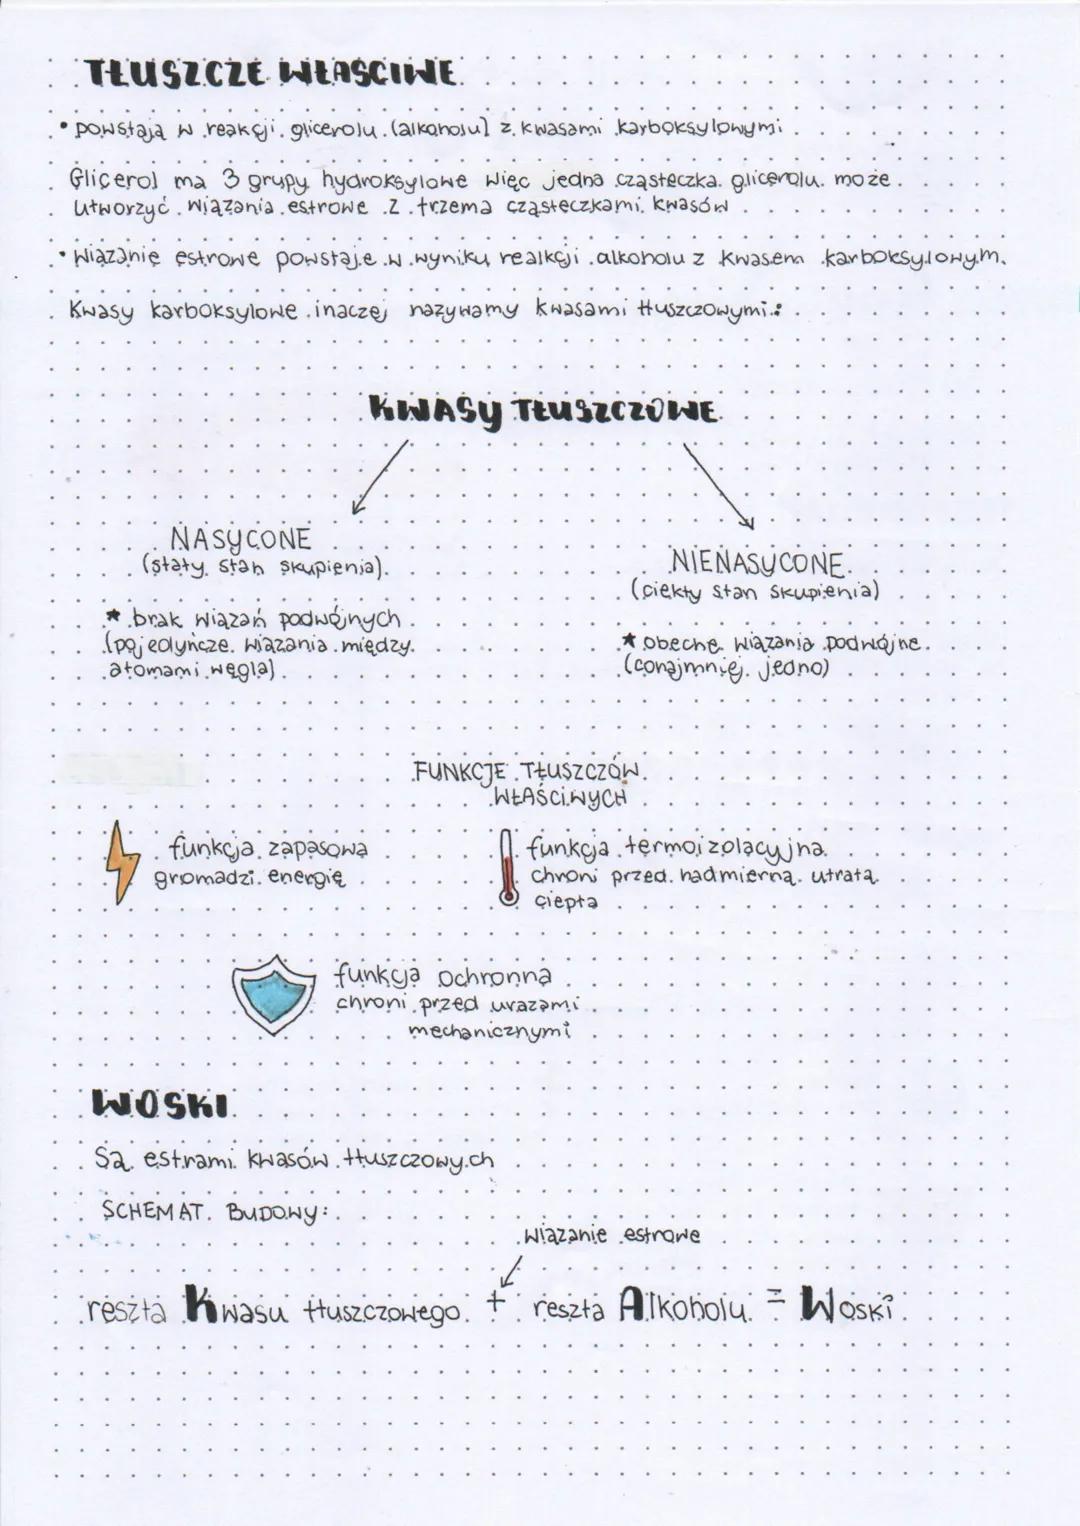 TŁUSZCZE WŁAŚCIWE
• powstają w reakcji glicerolu (alkoholu) z kwasami karboksylowymi
Glicerol ma 3 grupy hydroksylowe więc jedna cząsteczka glicerolu może
utworzyć wiązania estrowe z trzema cząsteczkami kwasów
• Wiązanie estrowe powstaje w wyniku realkcji alkoholu z kwasem karboksylowym.
Kwasy karboksylowe inaczej nazywamy kwasami tłuszczowymi:
KWASY TŁUSZCZOWE
NASYCONE
(stały stan skupienia)
* brak wiązań podwójnych
(pojedyńcze wiązania między
atomami węgla)
NIENASYCONE
(ciekły stan skupienia)
* obecne wiązania podwójne
(conajmniej jedno)
FUNKCJE TŁUSZCZÓW
WŁAŚCIWYCH
funkcja zapasowa
gromadzi energię
funkcja termoizolacyjna
chroni przed nadmierną utratą
ciepła
funkcja ochronna
chroni przed urazami
mechanicznymi
WOSKI
Są estrami kwasów tłuszczowych
SCHEMAT BUDOWY:
wiązanie estrowe
reszta Kwasu tłuszczowego + reszta Alkoholu = Woski